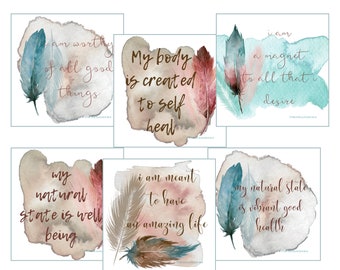 i am worthy
of all good
things
My body
is created
to self
heal
i am
a magnet
to all that i
desire
my
natural
state is well
being
i am meant
to have
an amazing life
my natural state
is vibrant good
health